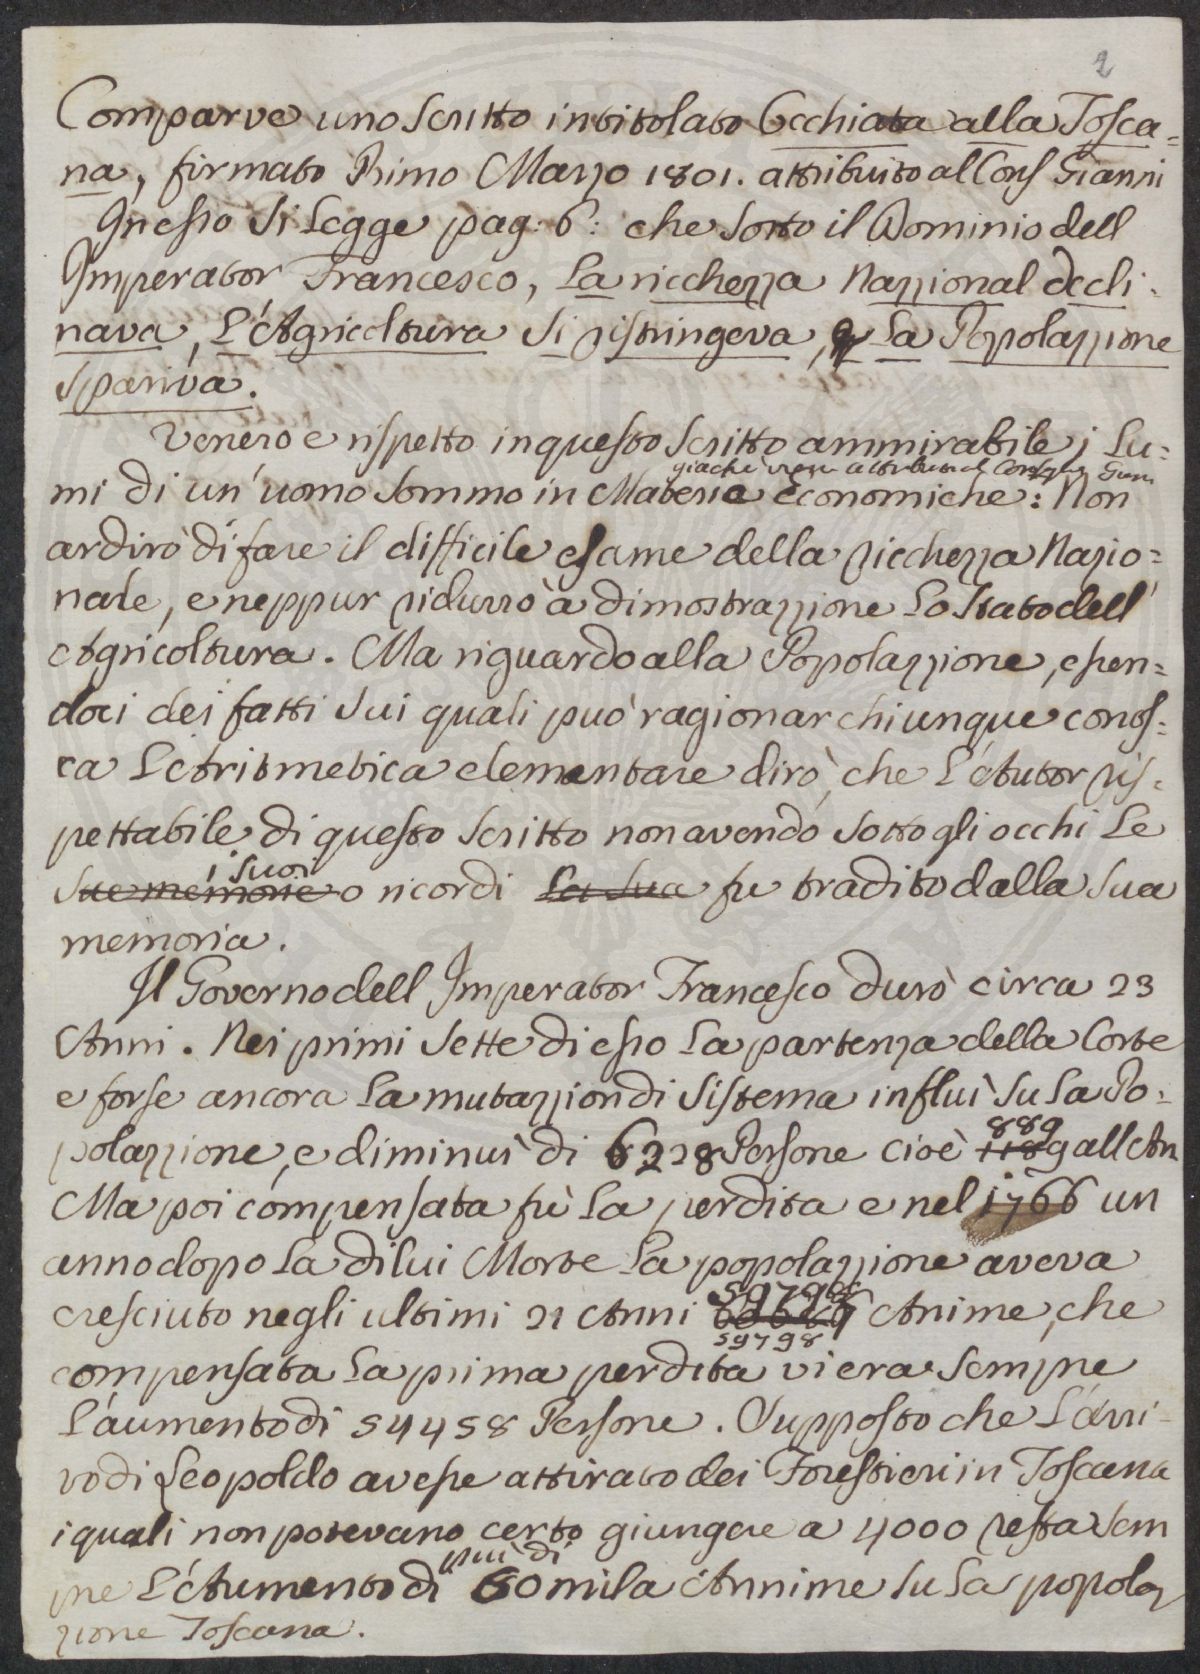 2
Comparve uno scritto intitolato Occhiata alla Tosca=
na, firmato Primo Marzo 1801. attribuito al Cons Gianni
In esso si legge pag: 6: che sotto il Dominio dell
Imperator Francesco, la ricchezza Nazzional decli-
nava, L'Agricoltura si ristringeva, e la Popolazzione
spariva.
Venero e rispetto in questo scritto ammirabile i Lu=
giachè vien attribuito al Consigre Giani
mi di un'uomo sommo in Materie economiche: Non
ardirò di fare il difficile esame della ricchezza Nazio=
nale, e neppur ridurrò a dimostrazzione lo stato dell'
Agricoltura. Ma riguardo alla Popolazzione, essen=
doci dei fatti sui quali può ragionar chiunque conos=
ca L'Aritmetica elementare dirò, che L'Autor ris=
pettabile di questo scritto non avendo sotto gli occhi le
i suoi
sue memorie o ricordi la sua fu tradito dalla sua
memoria.
Il Governo dell Imperator Francesco durò circa 23
Anni. Nei primi sette di esso la partenza della Corte
e forse ancora la mutazzion di sistema influì su la Po=
889
polazzione, e diminuì di 6228 Persone cioè 1189 all An
Ma poi compensata fù la perdita e nel 1766 un
anno dopo la di lui Morte la popolazzione aveva
59798
cresciuto negli ultimi 21 Anni Anime, che
59798
compensata la prima perdita vi era sempre
L'aumento di 54458 Persone. Supposto che L'arri-
vo di Leopoldo avesse attirato dei Forestieri in Toscana
i quali non potevano certo giungere a 4000 resta sem
più di
pre L'Aumento di 50 mila Annime su la popolaz
zione Toscana.